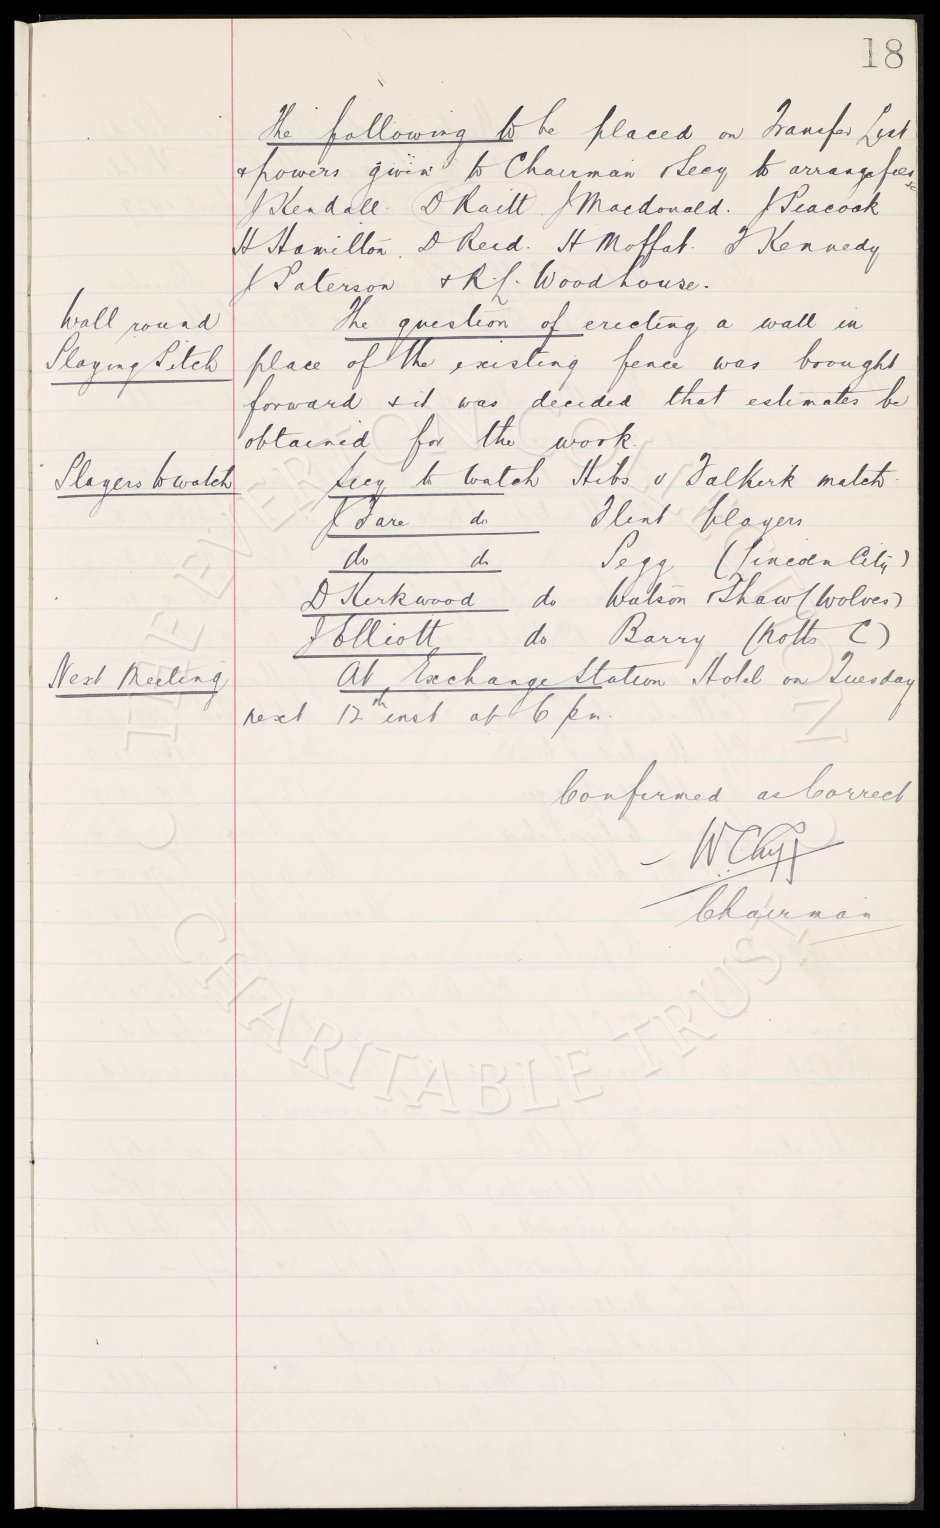 18
The following to be placed on Transfer List
& powers given to Chairman & Secy to arrange fees &c
J Kendall. D Raitt. J Macdonald. J Peacock
H Hamilton. D Reid. H Moffat. F Kennedy
J Paterson & R.L. Woodhouse.
Wall round The question of erecting a wall in
Playing Pitch place of the existing fence was brought
forward & it was decided that estimates be
obtained for the work.
Players to watch Secy to watch Hibs v Falkirk match.
J Fare do Flint players
do do Pegg (Lincoln City)
D Kirkwood do Watson & Shaw (Wolves)
J Elliott do Barry (Notts C)
Next Meeting At Exchange Station Hotel on Tuesday
next 12th inst at 6 pm.
Confirmed as Correct
W.C. Cuff
Chairman
© THE EVERTON COLLECTION
CHARITABLE TRUST